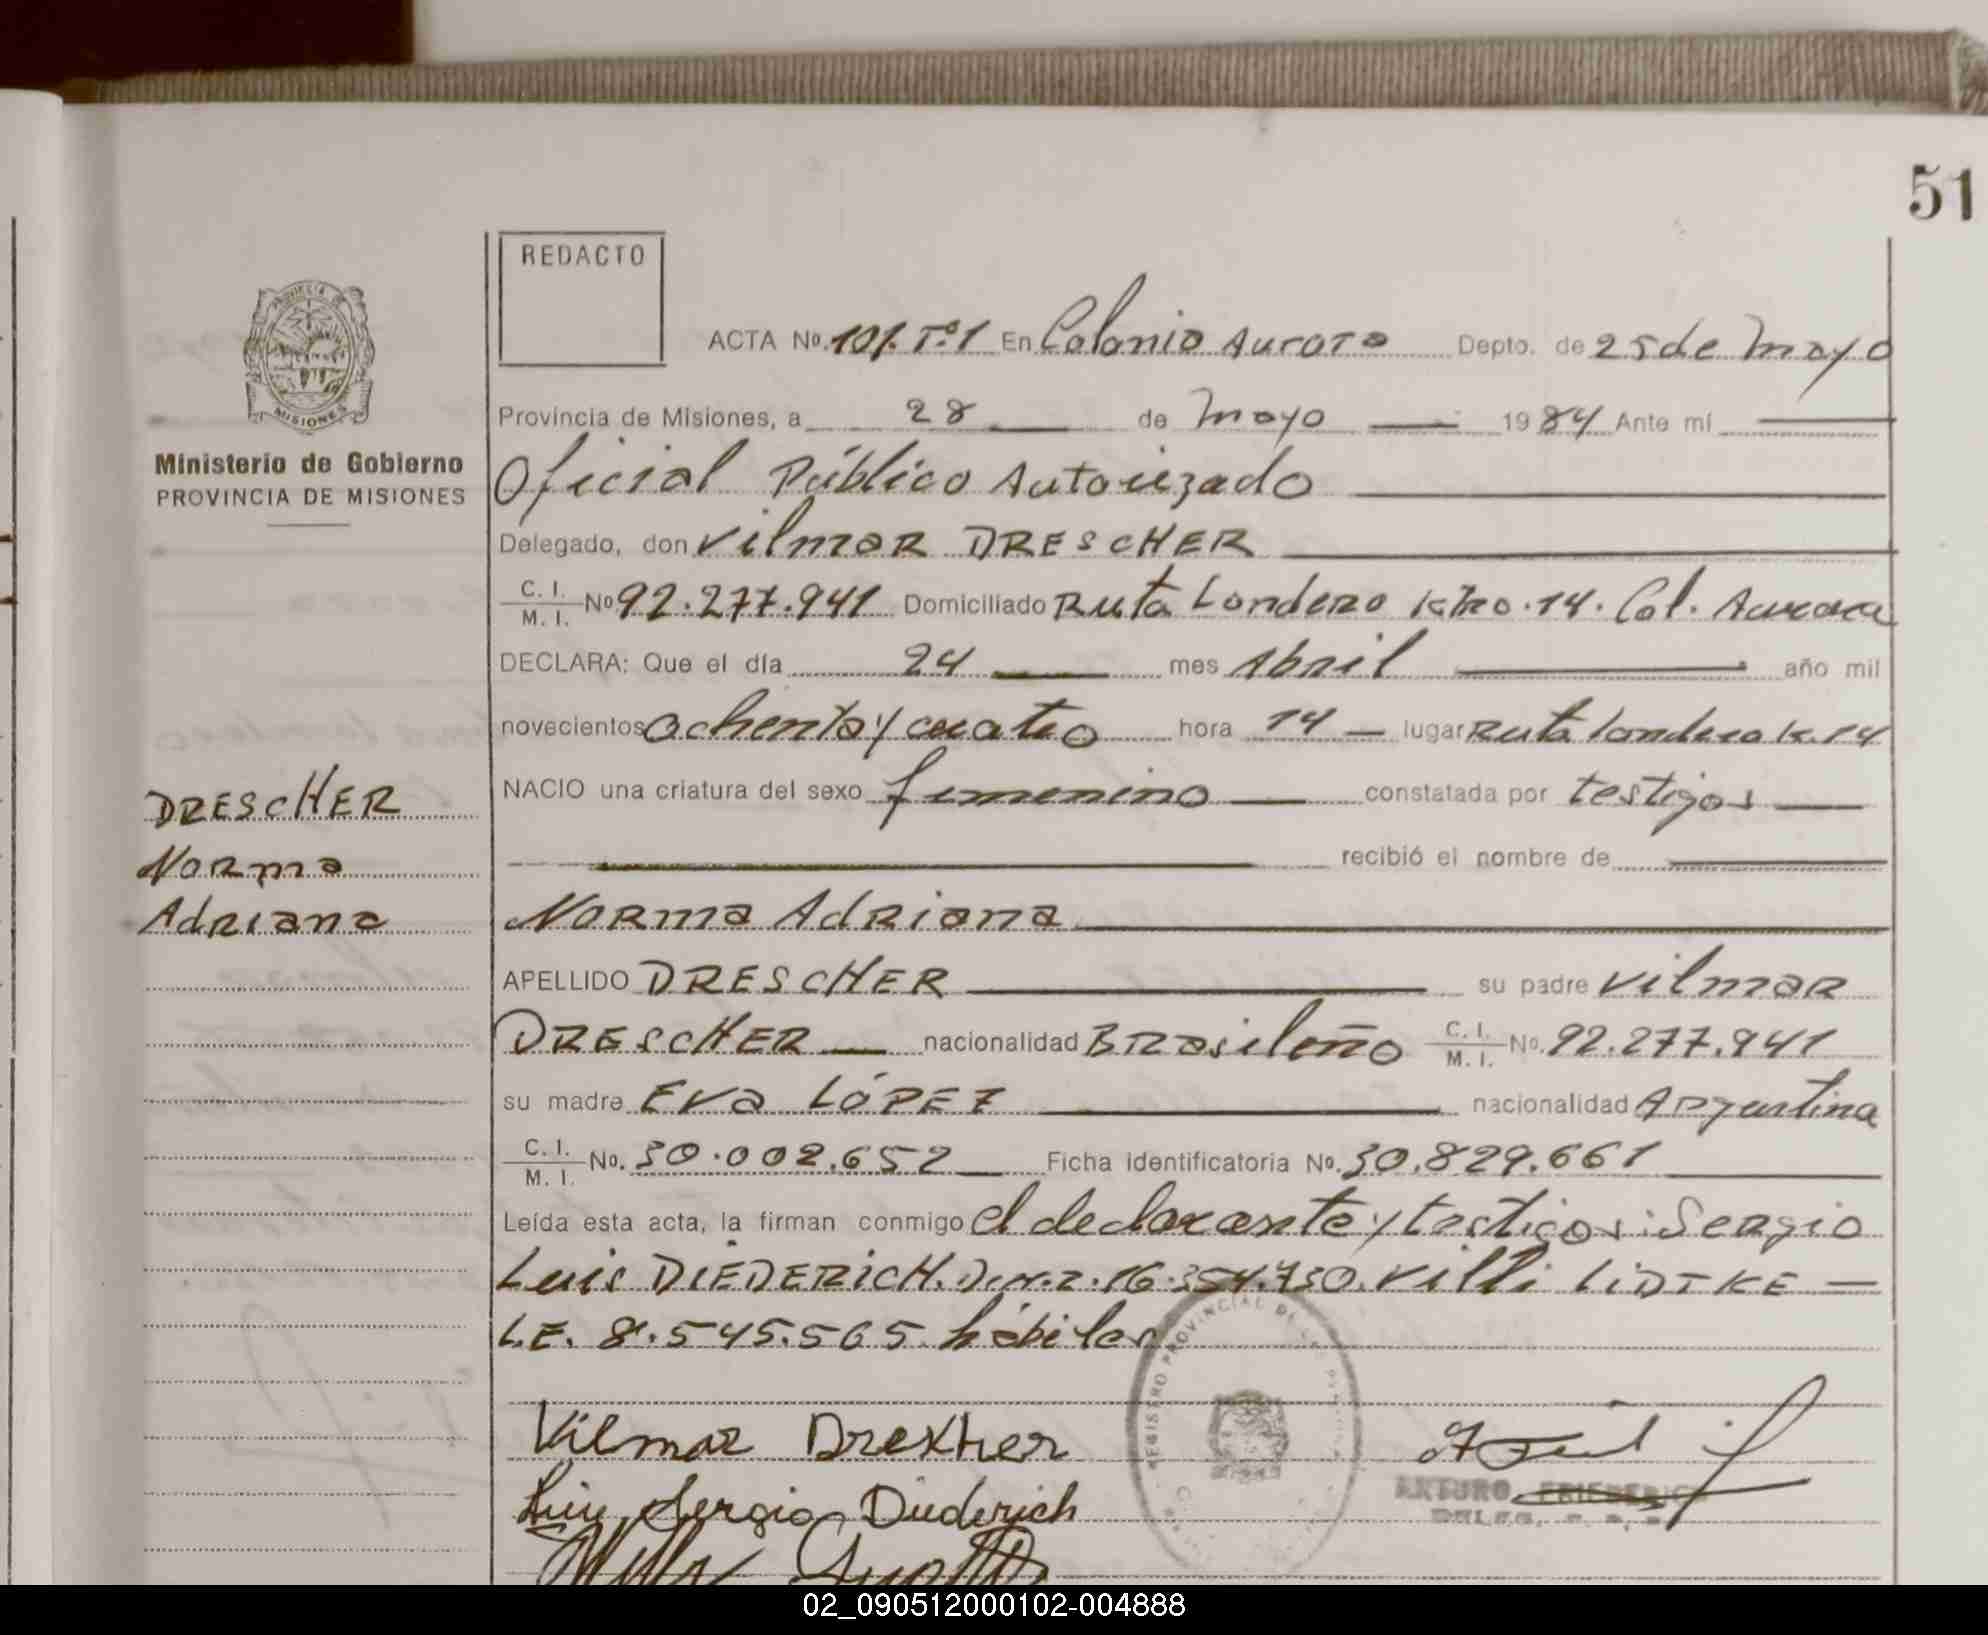 51
REDACTO
ACTA No. 101. Tº1 En Colonia Aurora Depto. de 25 de Mayo
MISIONES
Provincia de Misiones, a 28 de Mayo 1984 Ante mí
Ministerio de Gobierno
PROVINCIA DE MISIONES
Oficial Público Autorizado
Delegado, don Vilmar DRESCHER
C. I. / M. I. No 92.277.941 Domiciliado Ruta Londero Kmo. 14. Col. Aurora
DECLARA: Que el día 24 mes Abril año mil
novecientos ochenta y cuatro hora 14 lugar Ruta Londero K. 14
NACIO una criatura del sexo femenino constatada por testigos
recibió el nombre de
DRESCHER
Norma
Adriana
Norma Adriana
APELLIDO DRESCHER su padre Vilmar
DRESCHER nacionalidad Brasileño C. I. / M. I. No. 92.277.941
su madre Eva LÓPEZ nacionalidad Argentina
C. I. / M. I. No. 30.002.652 Ficha identificatoria No. 30.829.661
Leída esta acta, la firman conmigo el declarante y testigos: Sergio
Luis DIEDERICH. 16.354.730. Villi LIDTKE =
L.E. 8.545.565. hábiles
Vilmar Drexher
Luis Sergio Diederich
REGISTRO PROVINCIAL DE LAS
ARTURO FRIEDERICH
02_090512000102-004888